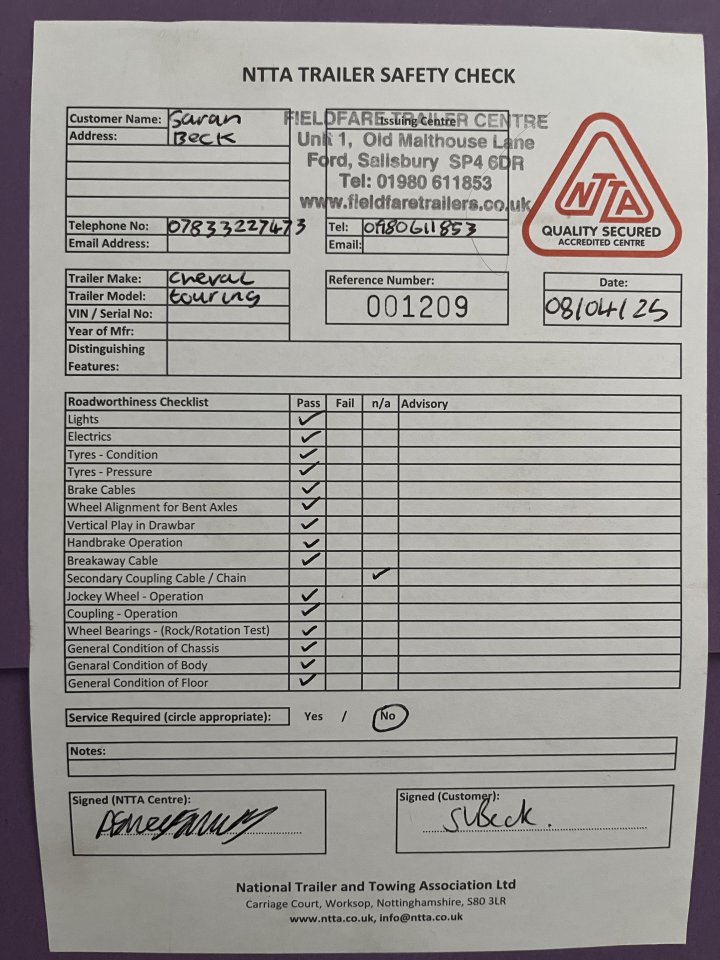 NTTA TRAILER SAFETY CHECK
Customer Name: Saran
Address: Beck
Issuing Centre
FIELDFARE TRAILER CENTRE
Unit 1, Old Malthouse Lane
Ford, Salisbury SP4 6DR
Tel: 01980 611853
www.fieldfaretrailers.co.uk
NTTA
QUALITY SECURED
ACCREDITED CENTRE
Telephone No: 07833227473
Tel: 01980611853
Email Address:
Email:
Trailer Make: Cheval
Trailer Model: touring
VIN / Serial No:
Year of Mfr:
Reference Number:
001209
Date:
08/04/25
Distinguishing
Features:
Roadworthiness Checklist Pass Fail n/a Advisory
Lights ✓
Electrics ✓
Tyres - Condition ✓
Tyres - Pressure ✓
Brake Cables ✓
Wheel Alignment for Bent Axles ✓
Vertical Play in Drawbar ✓
Handbrake Operation ✓
Breakaway Cable ✓
Secondary Coupling Cable / Chain ✓
Jockey Wheel - Operation ✓
Coupling - Operation ✓
Wheel Bearings - (Rock/Rotation Test) ✓
General Condition of Chassis ✓
Genaral Condition of Body ✓
General Condition of Floor ✓
Service Required (circle appropriate): Yes / No
Notes:
Signed (NTTA Centre):
Signed (Customer):
SBeck.
National Trailer and Towing Association Ltd
Carriage Court, Worksop, Nottinghamshire, S80 3LR
www.ntta.co.uk, info@ntta.co.uk